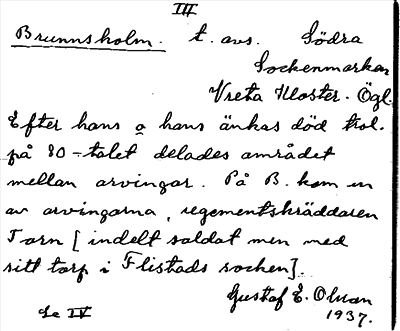 III
Brunnsholm. t. avs. Södra
Sockenmarken
Vreta Kloster. Ögl.
Efter hans o hans änkas död trol.
på 80-talet delades området
mellan arvingar. På B. kom en
av arvingarna, regementskräddaren
Tarn [indelt soldat men med
sitt torp i Flistads socken].
Gustaf E. Olsson
1937.
Se IV